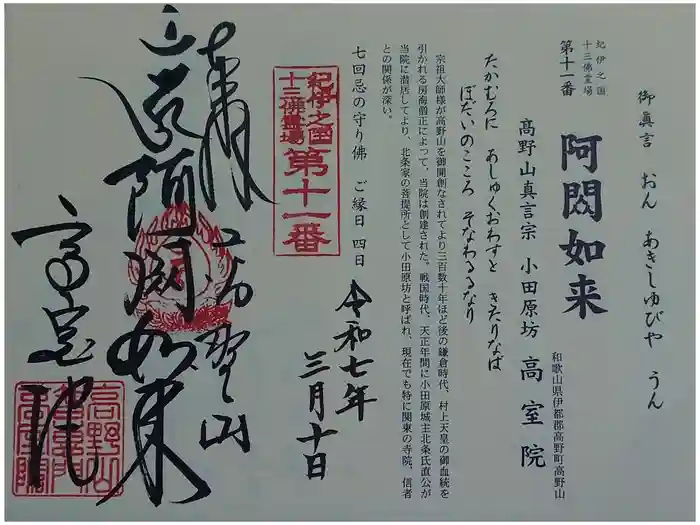 御真言 おん あきしゅびや うん
紀伊之国
十三佛霊場
第十一番
阿閦如来
和歌山県伊都郡高野町高野山
高野山真言宗 小田原坊 高室院
たかむろに あしゅくおわすと きたりなば
ぼだいのこころ そなわるなり
宗祖大師様が高野山を御開創なされてより三百数十年ほど後の鎌倉時代、村上天皇の御血統を
引かれる房海僧正によって、当院は創建された。戦国時代、天正年間に小田原城主北条氏直公が
当院に潜居してより、北条家の菩提所として小田原坊と呼ばれ、現在でも特に関東の寺院、信者
との関係が深い。
七回忌の守り佛 ご縁日 四日
令和七年
三月十日
紀伊之国
十三佛霊場
第十一番
奉拝
高野山
阿閦如来
高室院